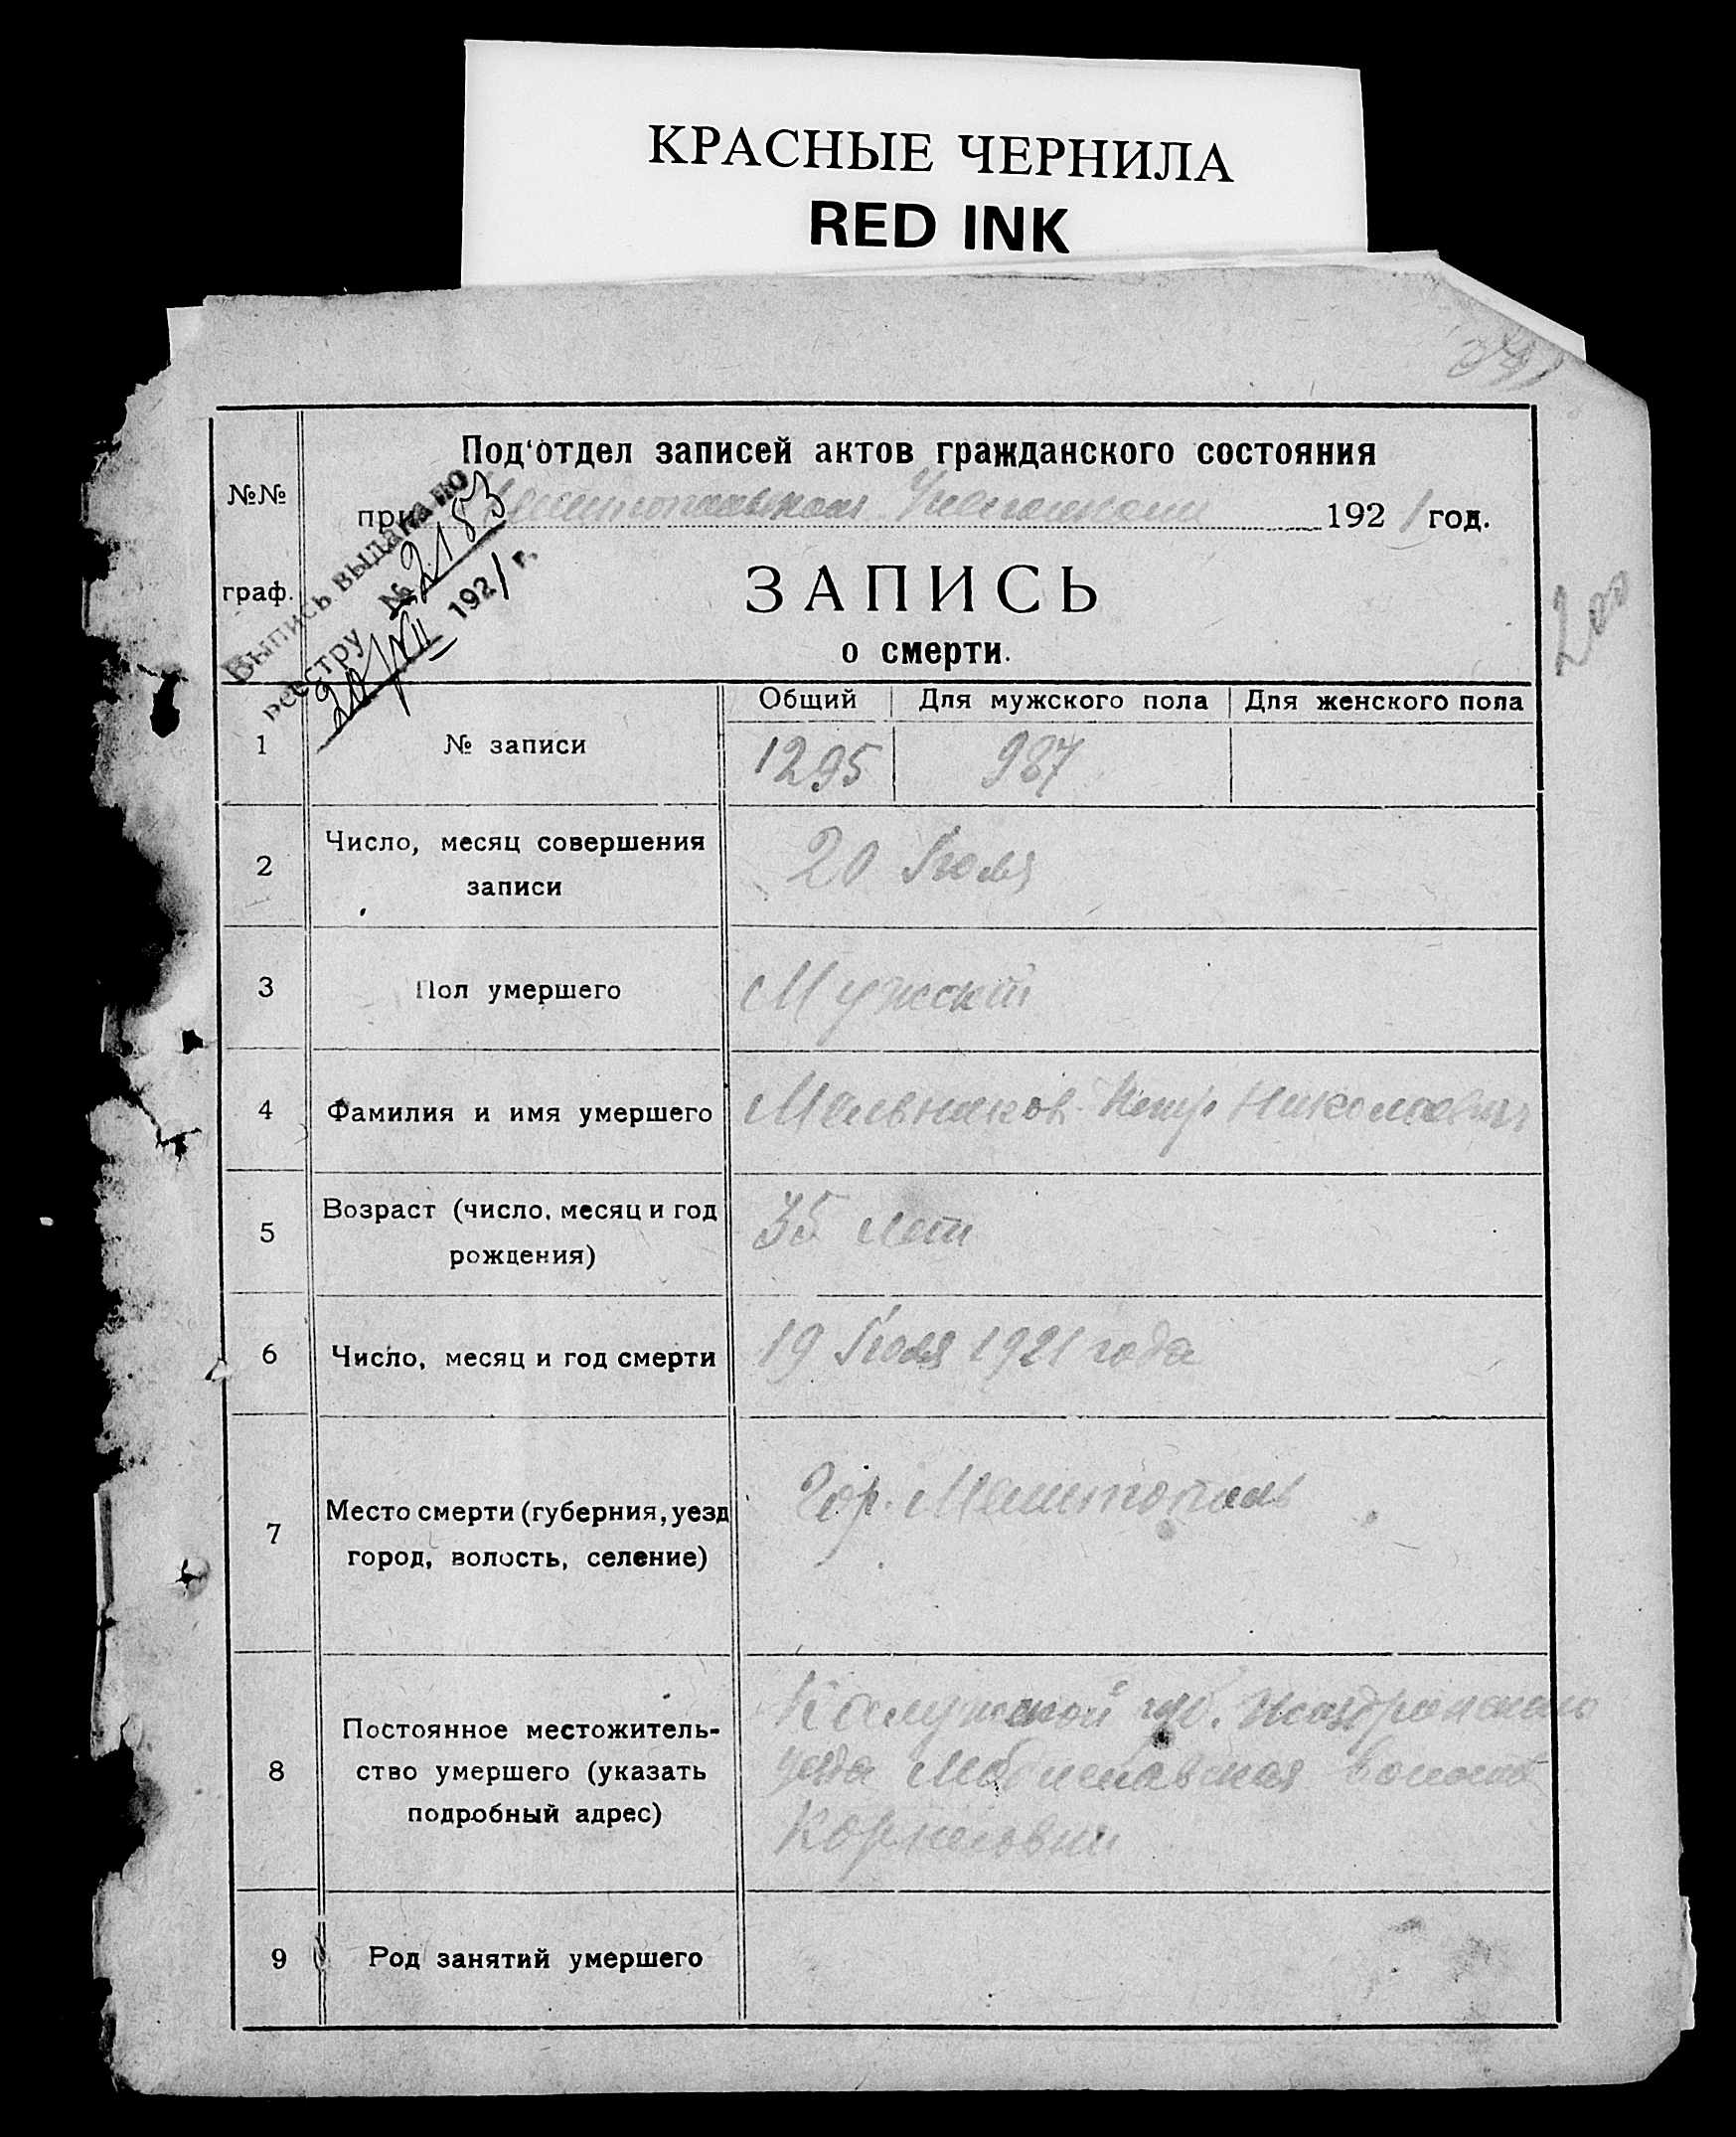 КРАСНЫЕ ЧЕРНИЛА
RED INK
Под‘отдел записей актов гражданского состояния
№№
при 192 1 год.
граф.
Выпись выдана по
реестру № 2183
20/VII 1921 г.
ЗАПИСЬ
о смерти.
Общий Для мужского пола Для женского пола
1 № записи 1295 987
2 Число, месяц совершения
записи
20 Июля
3 Пол умершего Мужской
4 Фамилия и имя умершего Петр Николаевич
5 Возраст (число, месяц и год
рождения)
35 лет
6 Число, месяц и год смерти 19 Июля 1921 года
7 Место смерти (губерния, уезд
город, волость, селение)
Гор. Мелитополь
8 Постоянное местожитель-
ство умершего (указать
подробный адрес)
Калужской губ.
уезда
9 Род занятий умершего
200